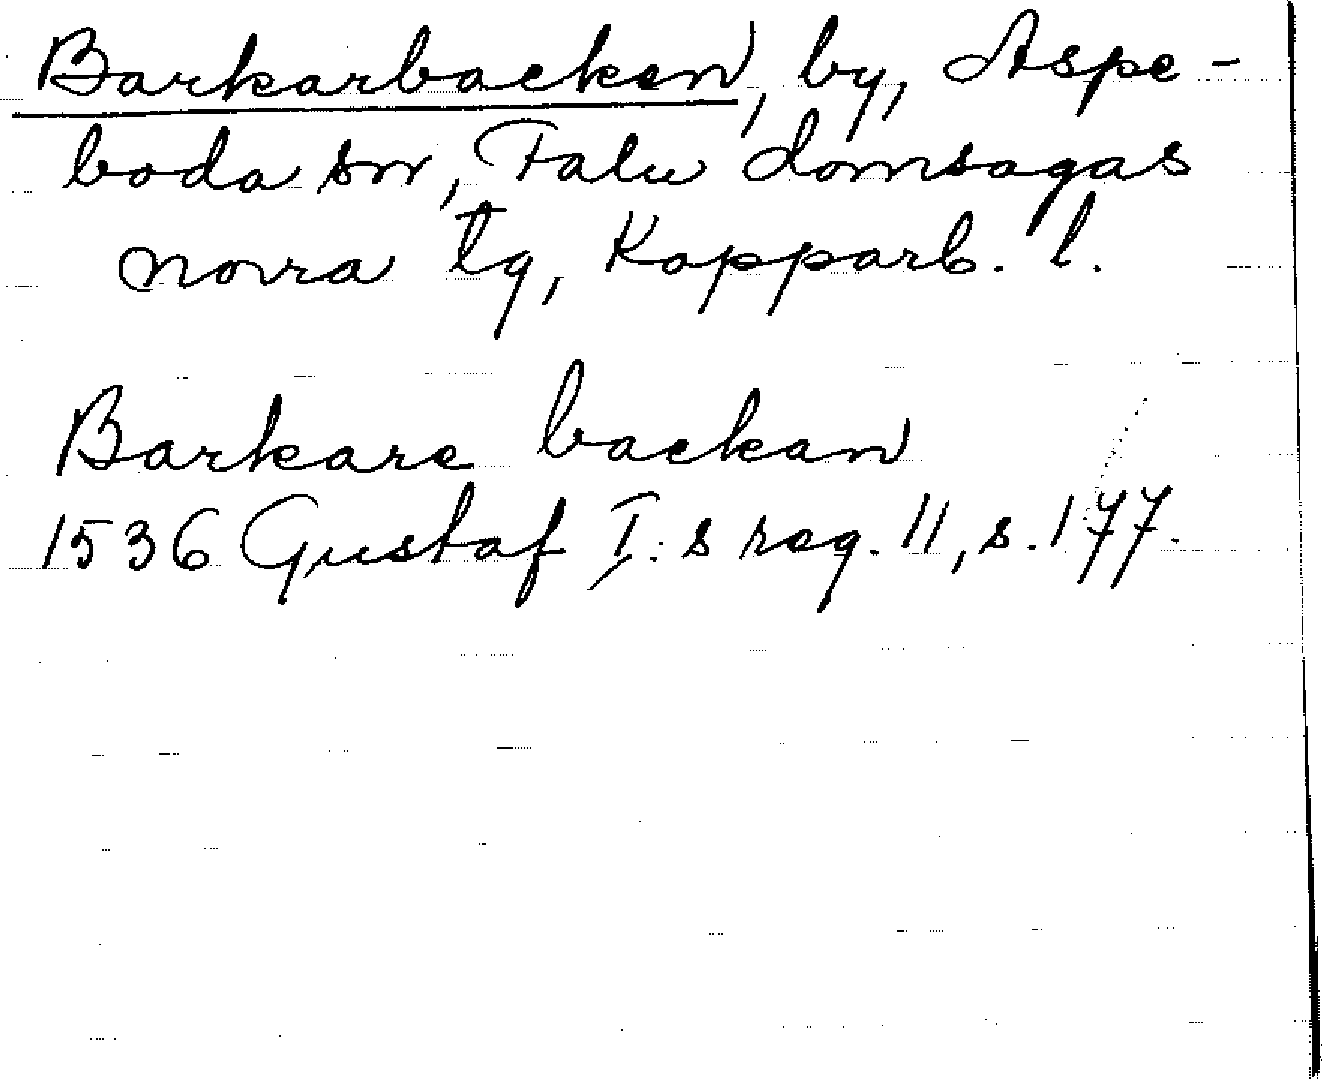 Barkarbacken, by, Aspe-
boda sn, Falu domsagas
norra tg, Kopparb. l.
Barkare backan
1536 Gustaf I:s reg. 11, s. 177.